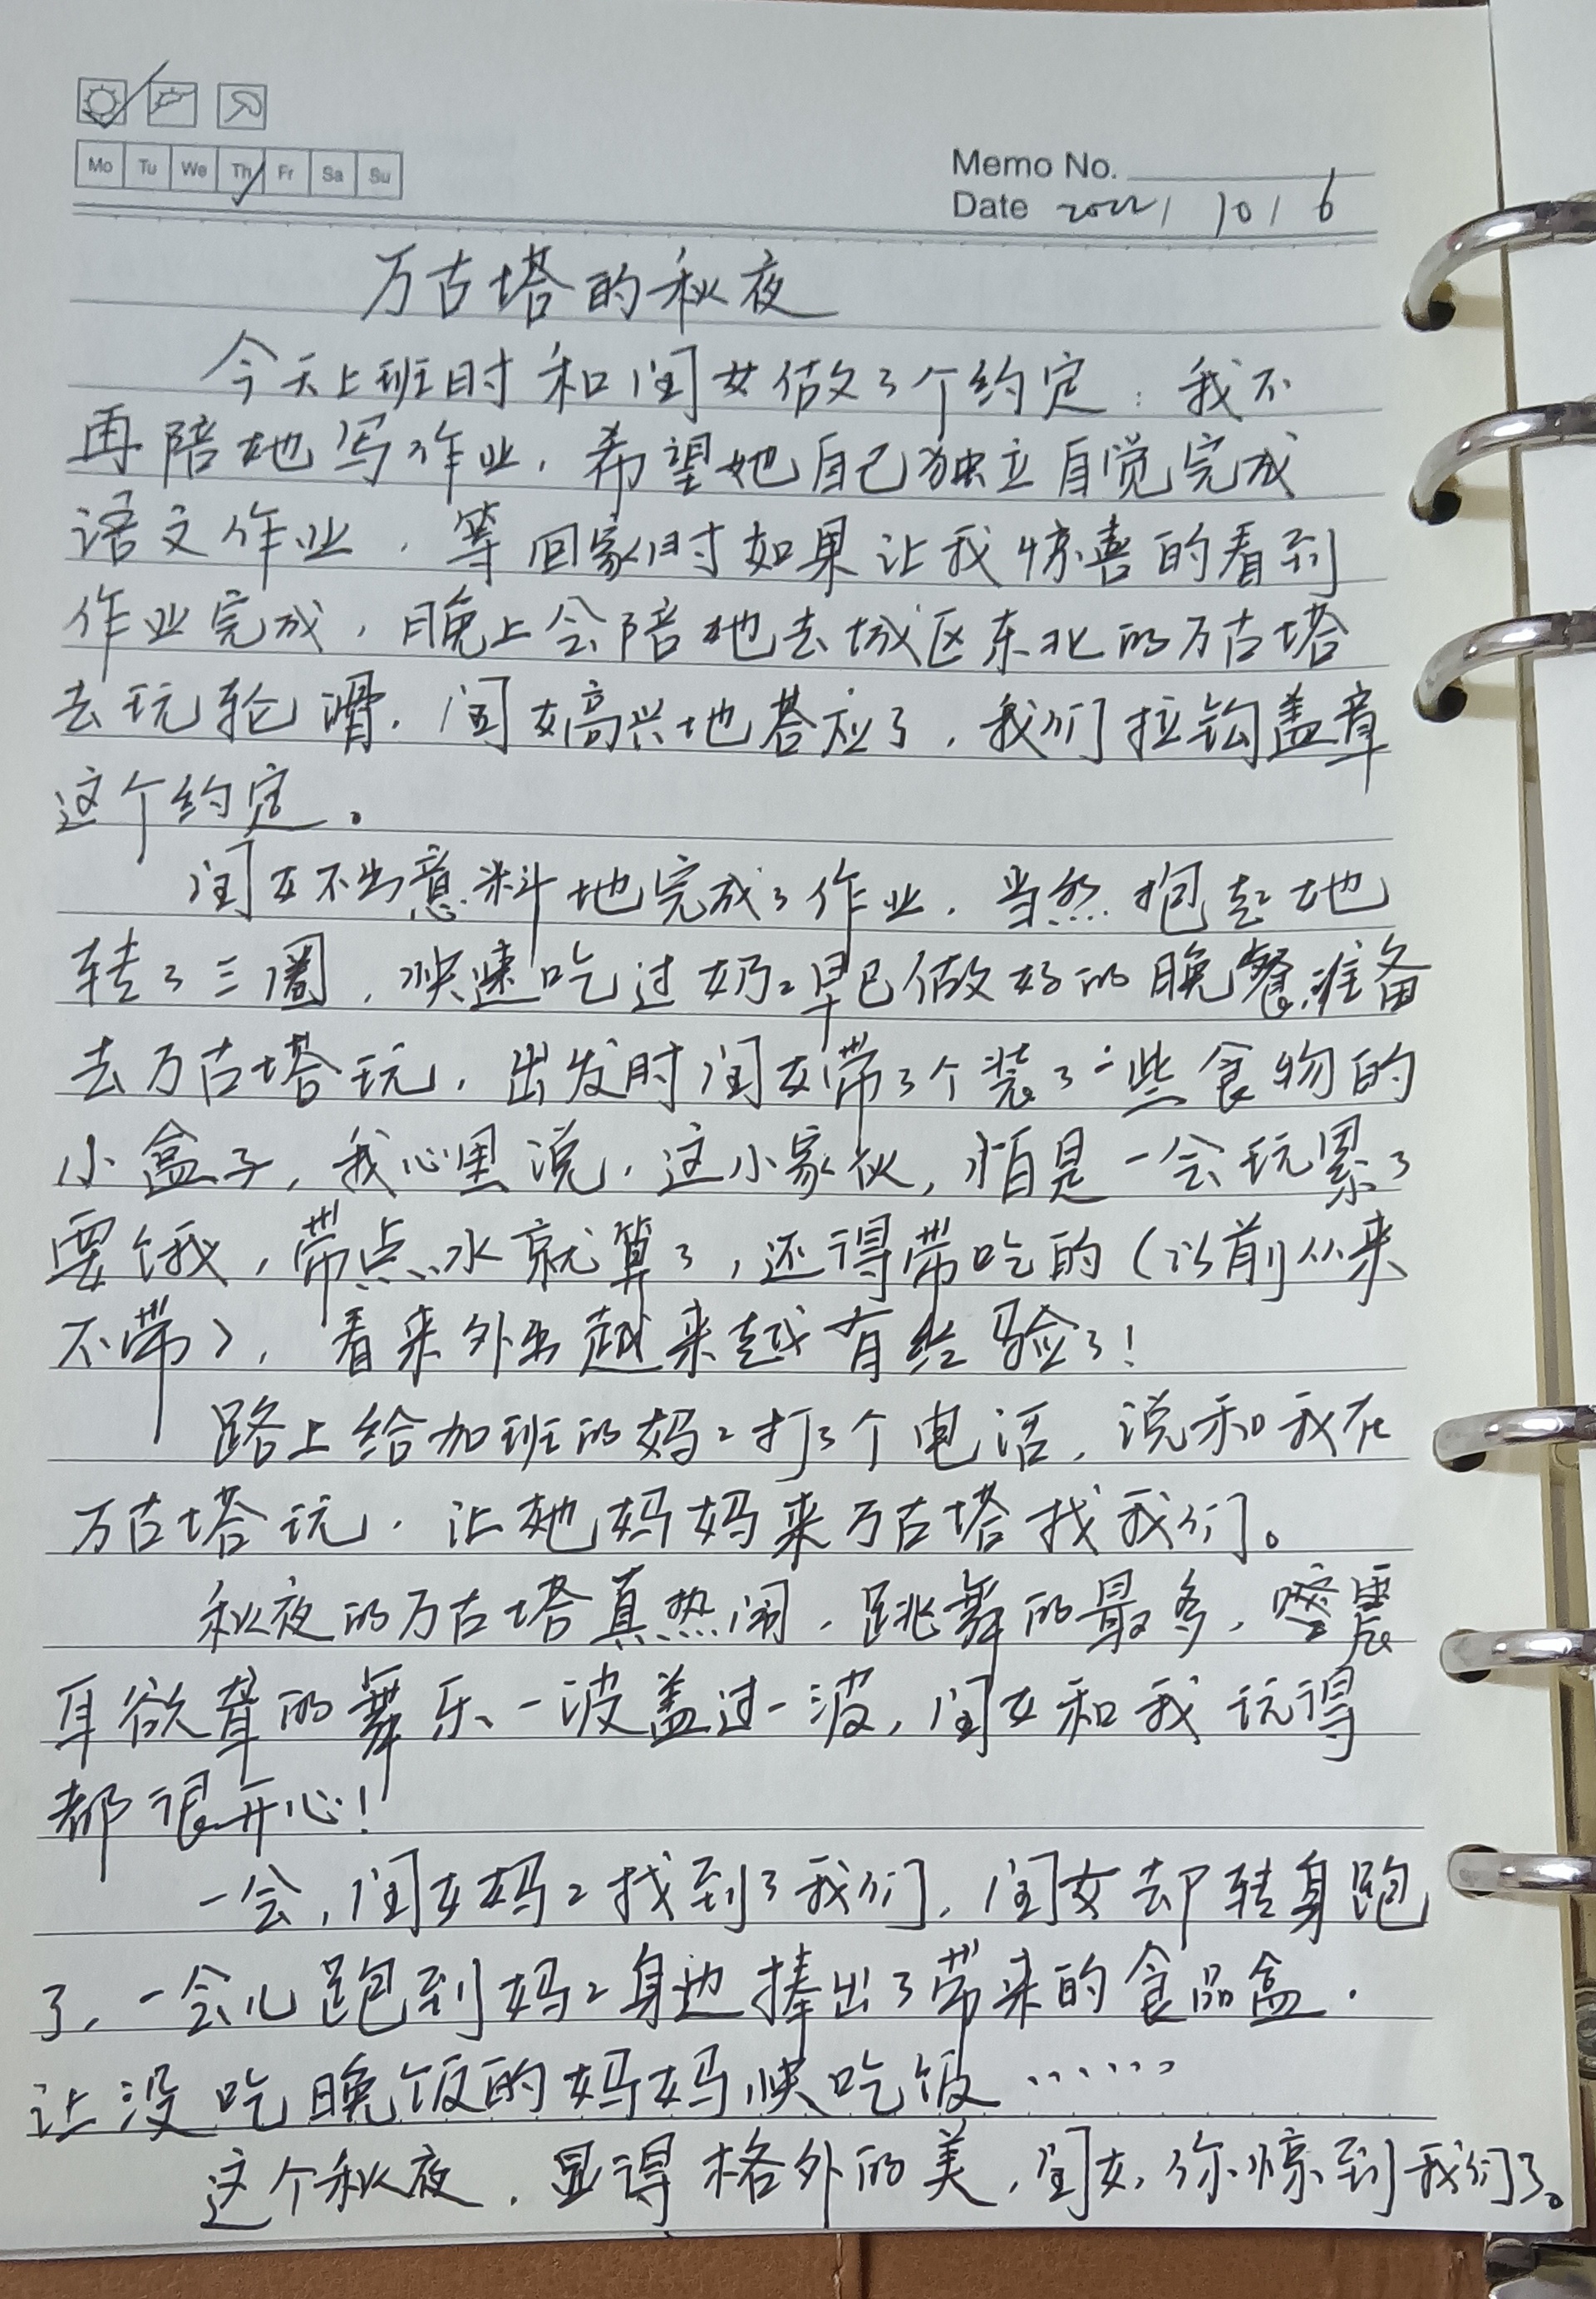 Mo Tu We Th Fr Sa Su
Memo No.
Date 2022 / 10 / 6
万古塔的秋夜
今天上班时和闺女做了个约定：我不
再陪她写作业，希望她自己独立自觉完成
语文作业，等回家时如果让我惊喜的看到
作业完成，晚上会陪她去城区东北的万古塔
去玩轮滑，闺女高兴地答应了，我们拉钩盖章
这个约定。
闺女不出意料地完成了作业，当然抱起她
转了三圈，快速吃过奶々早已做好的晚餐准备
去万古塔玩，出发时闺女带了个装了一些食物的
小盒子，我心里说，这小家伙，怕是一会玩累了
要饿，带点水就算了，还得带吃的（以前从来
不带），看来外出越来越有经验了！
路上给加班的妈々打了个电话，说和我在
万古塔玩，让她妈妈来万古塔找我们。
秋夜的万古塔真热闹，跳舞的最多，震
耳欲聋的舞乐一波盖过一波，闺女和我玩得
都很开心！
一会，闺女妈々找到了我们，闺女却转身跑
了，一会儿跑到妈々身边捧出了带来的食品盒，
让没吃晚饭的妈妈快吃饭……
这个秋夜，显得格外的美，闺女，你惊到我们了。